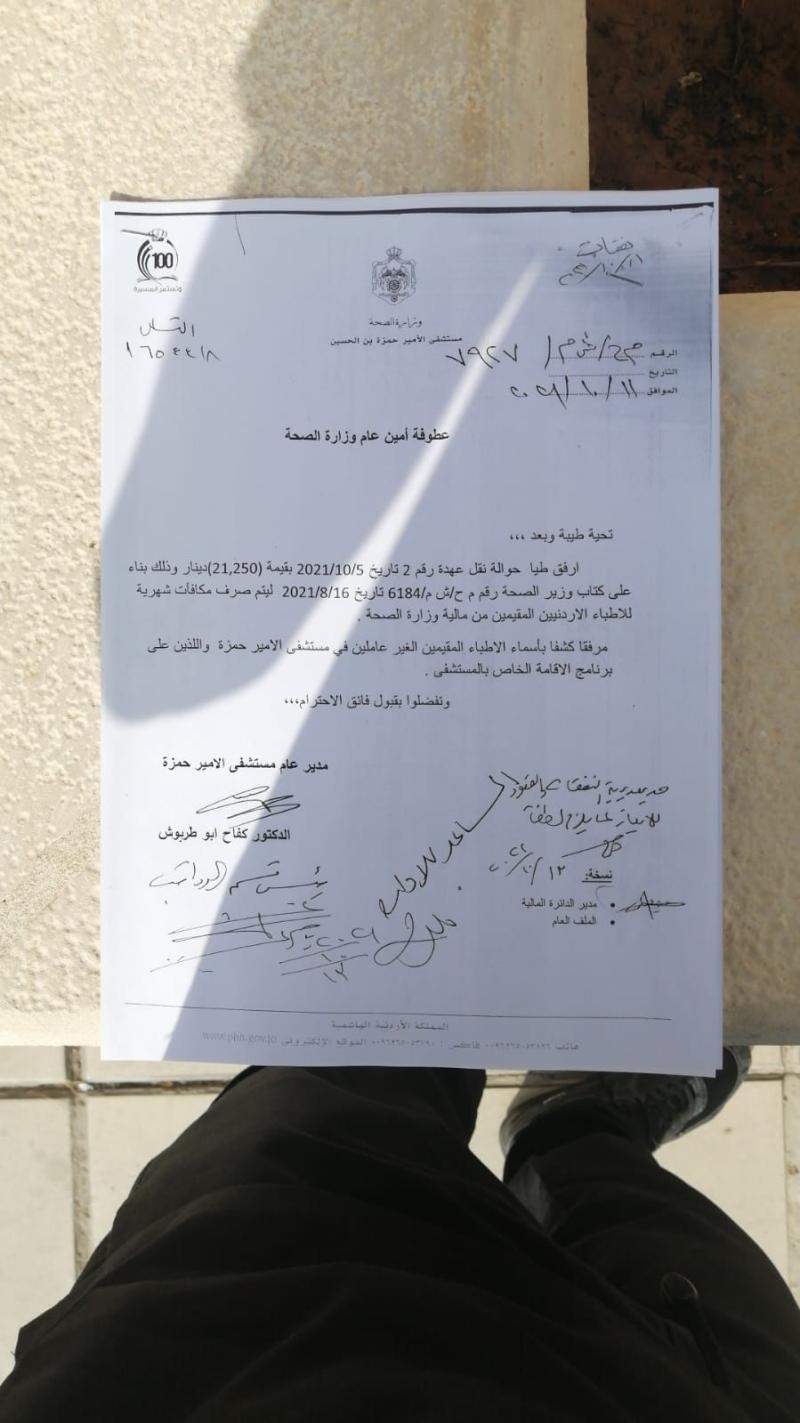 100
وتستمر المسيرة
نفقات
وزارة الصحة
مستشفى الأمير حمزة بن الحسين
الرقم م ح/ش م/ ٧٩٢٧
التاريخ
الموافق ١١/١٠/٢٠٢١
عطوفة أمين عام وزارة الصحة
تحية طيبة وبعد ،،،
ارفق طيا حوالة نقل عهدة رقم 2 تاريخ 2021/10/5 بقيمة (21,250)دينار وذلك بناء
على كتاب وزير الصحة رقم م ح/ش م/6184 تاريخ 2021/8/16 ليتم صرف مكافآت شهرية
للاطباء الاردنيين المقيمين من مالية وزارة الصحة .
مرفقا كشفا بأسماء الاطباء المقيمين الغير عاملين في مستشفى الامير حمزة واللذين على
برنامج الاقامة الخاص بالمستشفى .
وتفضلوا بقبول فائق الاحترام،،،
مدير عام مستشفى الامير حمزة
الدكتور كفاح ابو طربوش
رئيس قسم الرواتب
نسخة:
مدير الدائرة المالية
الملف العام
المملكة الأردنية الهاشمية